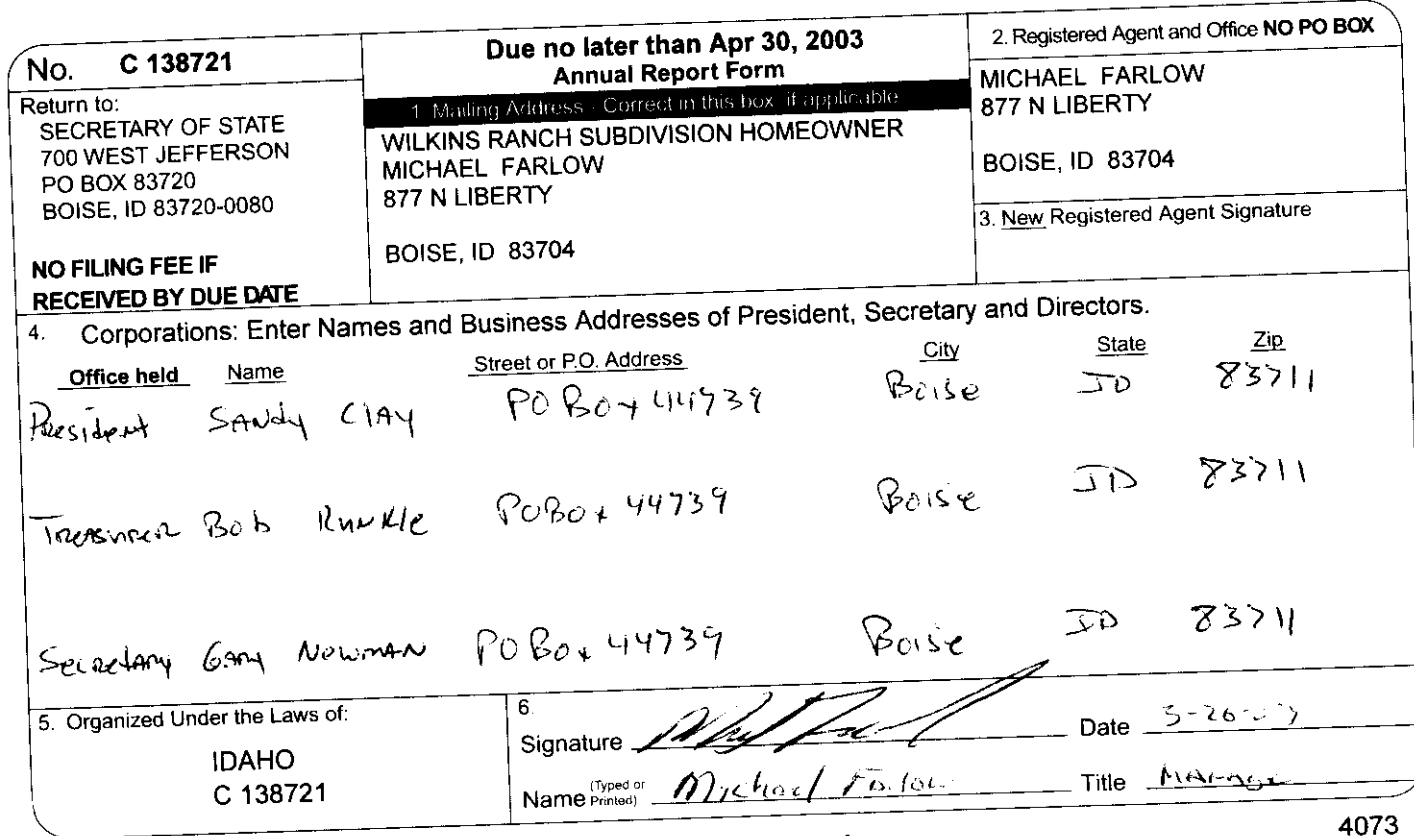 No. C 138721
Return to:
SECRETARY OF STATE
700 WEST JEFFERSON
PO BOX 83720
BOISE, ID 83720-0080
NO FILING FEE IF
RECEIVED BY DUE DATE
Due no later than Apr 30, 2003
Annual Report Form
1. Mailing Address - Correct in this box if applicable
WILKINS RANCH SUBDIVISION HOMEOWNER
MICHAEL FARLOW
877 N LIBERTY
BOISE, ID 83704
2. Registered Agent and Office NO PO BOX
MICHAEL FARLOW
877 N LIBERTY
BOISE, ID 83704
3. New Registered Agent Signature
4. Corporations: Enter Names and Business Addresses of President, Secretary and Directors.
Office held Name Street or P.O. Address City State Zip
President Sandy Clay PO Box 44739 Boise ID 83711
Treasurer Bob Runkle PO Box 44739 Boise ID 83711
Secretary Gary Newman PO Box 44739 Boise ID 83711
5. Organized Under the Laws of:
IDAHO
C 138721
6.
Signature Date
Name (Typed or Printed) Michael Farlow Title Manager
4073